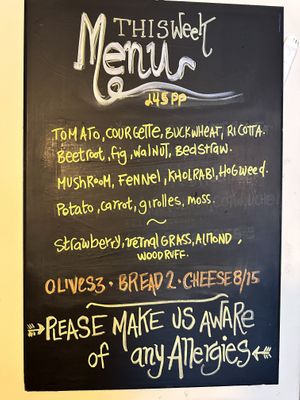 THIS Week
Menu
£45 PP
TOMATO, COURGETTE, BUCKWHEAT, RICOTTA.
Beetroot, fig, walnut, Bedstraw.
MUSHROOM, Fennel, KHOLRABI, HOGWeed.
Potato, carrot, girolles, moss.
~
Strawberry, vernal GRASS, ALMOND,
WOODRUFF.
OLIVES 3 · BREAD 2 · CHEESE 8/15
PLEASE MAKE US AWARE
of any Allergies